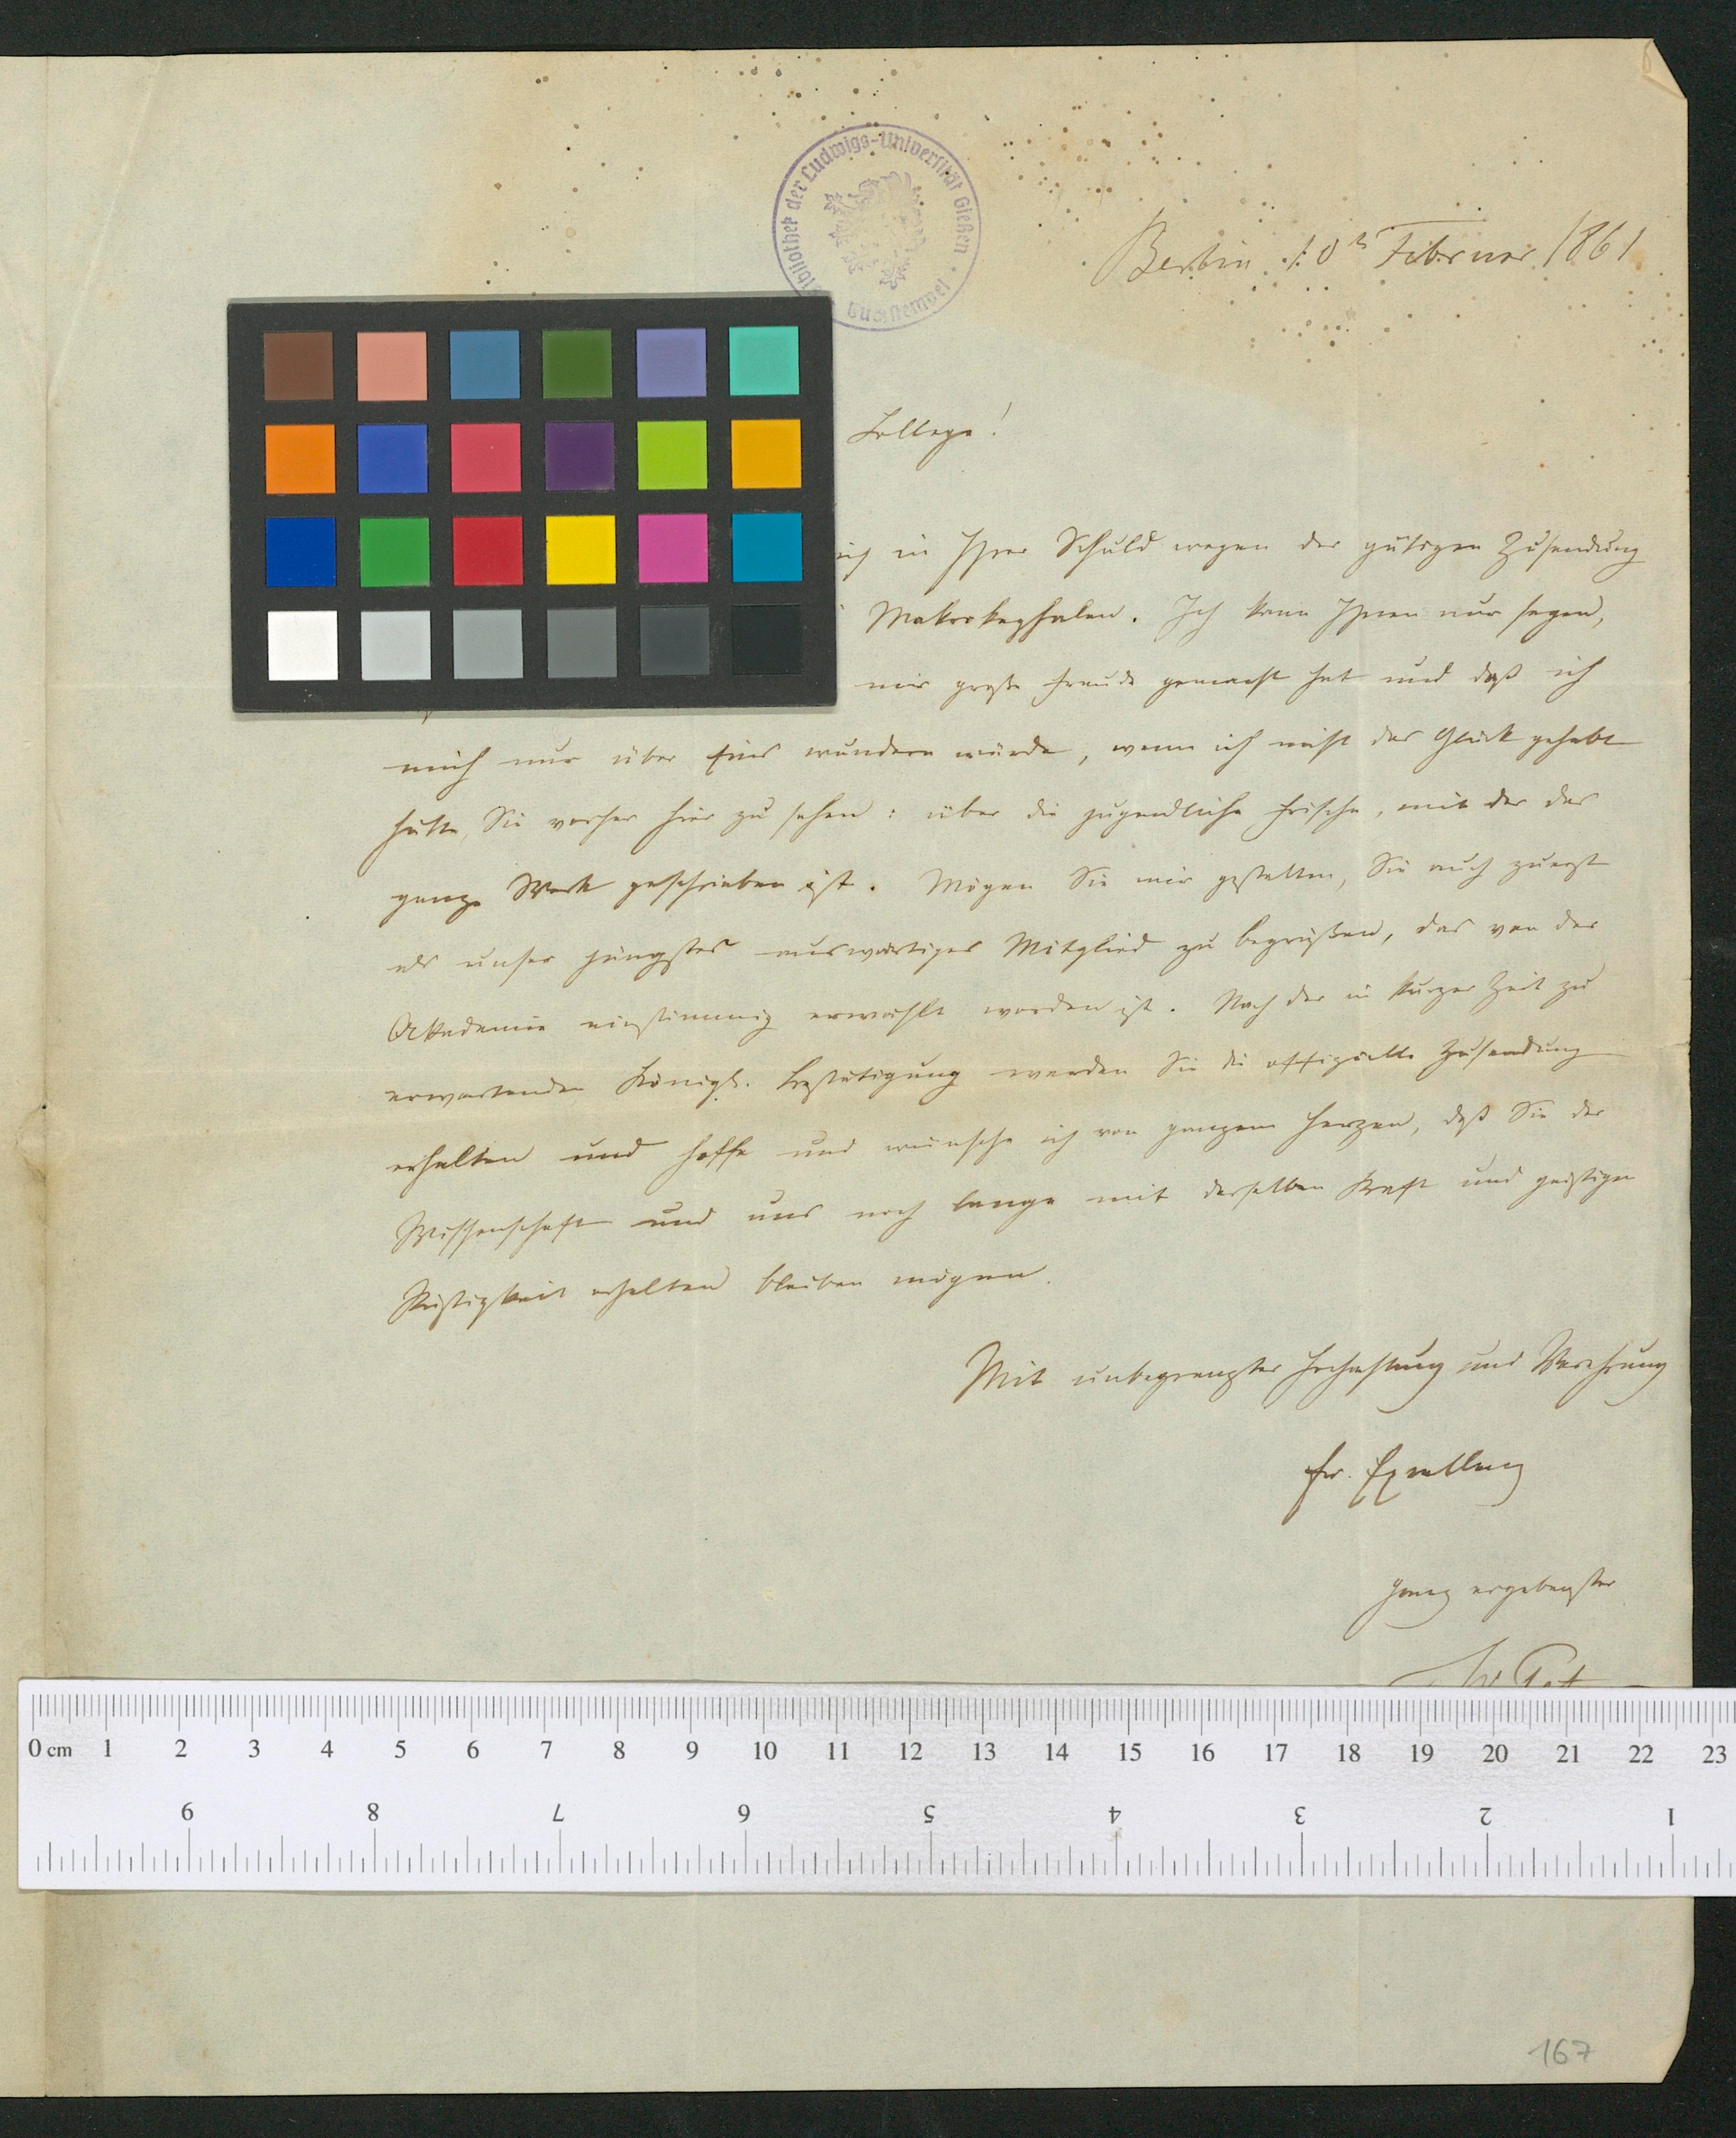 Bibliothek der Ludwigs-Universität Gießen · Buchstempel
Berlin 10 Februar 1861
College!
ich in Ihrer Schuld wegen der gütigen Zusendung
Makrokephalen. Ich kann Ihnen nur sagen,
mir große Freude gemacht hat und daß ich
mich nur über Eins wundern würde, wenn ich nicht das Glück gehabt
hätte, Sie vorher hier zu sehen: über die jugendliche Frische, mit der das
ganze Werk geschrieben ist. Mögen Sie mir gestatten, Sie auch zuerst
als unser jüngstes auswärtiges Mitglied zu begrüßen, das von der
Akademie einstimmig erwählt worden ist. Nach der in kurzer Zeit zu
erwartenden Königl. Bestätigung werden Sie die offizielle Zusendung
erhalten und hoffe und wünsche ich von ganzem Herzen, daß Sie der
Wissenschaft und uns noch lange mit derselben Kraft und geistigen
Rüstigkeit erhalten bleiben mögen.
Mit unbegrenzter Hochachtung und Verehrung
Ew. Excellenz
ganz ergebenster
0 cm 1 2 3 4 5 6 7 8 9 10 11 12 13 14 15 16 17 18 19 20 21 22 23
9 8 7 6 5 4 3 2 1
167